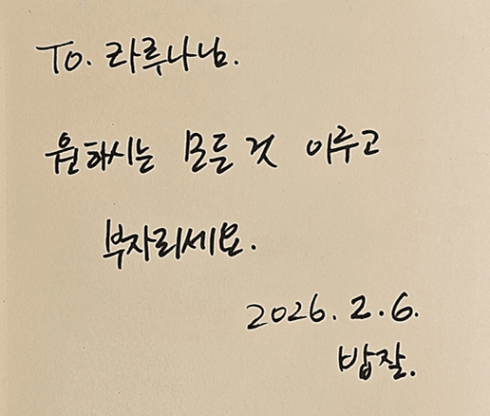 To. 라루나님.
원하시는 모든 것 이루고
부자되세요.
2026. 2. 6.
밥잘.